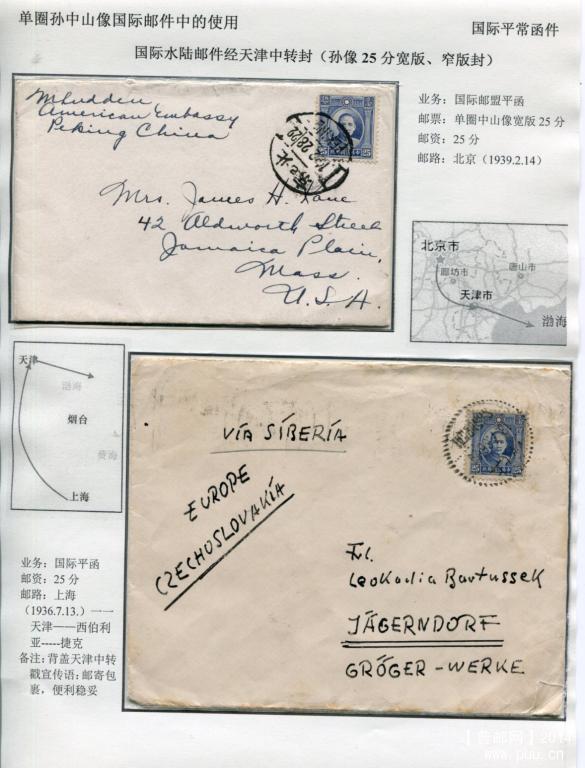 单圈孙中山像国际邮件中的使用
国际平常函件
国际水陆邮件经天津中转封（孙像25分宽版、窄版封）
American Embassy
Peking China
Mrs. James H. Kane
42 Aldworth Street
Jamaica Plain,
Mass.
U.S.A.
25 25
业务：国际邮盟平函
邮票：单圈中山像宽版25分
邮资：25分
邮路：北京（1939.2.14）
北京市
廊坊市
唐山市
天津市
渤海
天津
渤海
烟台
黄海
上海
业务：国际平函
邮资：25分
邮路：上海
（1936.7.13.）一一
天津——西伯利
亚-----捷克
备注：背盖天津中转
戳宣传语：邮寄包
裹，便利稳妥
VIA SIBERIA
EUROPE
CZECHOSLOVAKIA
25 25
Frl.
Leokadia Bartussek
JÄGERNDORF
GRÖGER-WERKE
【普邮网】2014
www.puu.cn